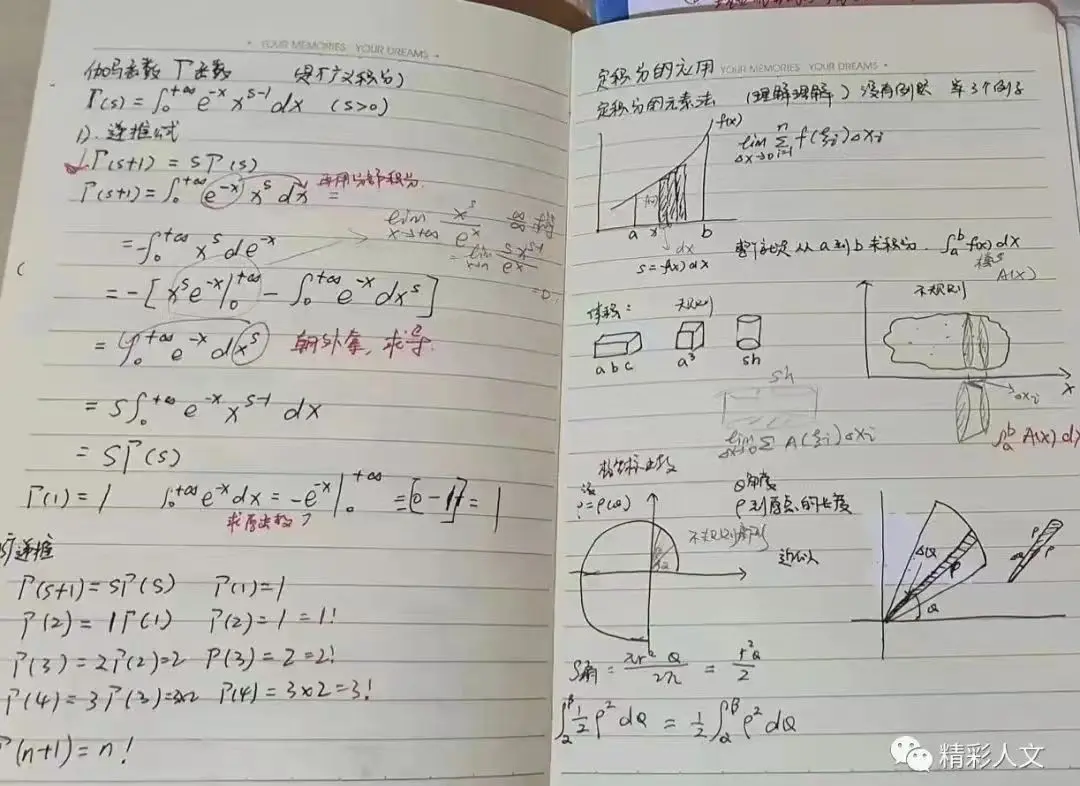 YOUR MEMORIES YOUR DREAMS
伽马函数 Γ函数 (是广义积分)
Γ(s) = ∫₀^{+∞} e^{-x} x^{s-1} dx (s>0)
1). 递推公式
Γ(s+1) = sΓ(s)
Γ(s+1) = ∫₀^{+∞} e^{-x} x^s dx = 再用分部积分.
= -∫₀^{+∞} x^s de^{-x}
lim_{x→+∞} x^s / e^x
= -[x^s e^{-x}|₀^{+∞} - ∫₀^{+∞} e^{-x} dx^s]
= 0
= ∫₀^{+∞} e^{-x} dx^s 朝外拿, 求导.
= s∫₀^{+∞} e^{-x} x^{s-1} dx
= sΓ(s)
Γ(1) = 1 ∫₀^{+∞} e^{-x} dx = -e^{-x}|₀^{+∞} = -[0-1] = 1
求原函数
递推
Γ(s+1) = sΓ(s) Γ(1) = 1
Γ(2) = 1Γ(1) Γ(2) = 1 = 1!
Γ(3) = 2Γ(2) = 2 Γ(3) = 2 = 2!
Γ(4) = 3Γ(3) = 3×2 Γ(4) = 3×2 = 3!
Γ(n+1) = n!
定积分的应用 YOUR MEMORIES YOUR DREAMS
定积分的元素法 (理解理解) 没有例题 举3个例子
f(x)
lim_{Δx→0} Σ_{i=1}^{n} f(ξi)Δxi
a x b
dx
s = f(x) dx
整个就是从a到b求积分. ∫ₐᵇ f(x) dx
A(x)
体积: 规则 不规则
abc a³ sh
x
Δxi
sh
lim_{Δx→0} Σ A(ξi)Δxi
∫ₐᵇ A(x) dx
极坐标
ρ = ρ(θ)
θ 角度
ρ 到原点的长度
不规则扇形
近似
Δθ
ρ
θ
ρ
ρ
S扇 = πr² θ / 2π = r²θ / 2
∫_α^β ½ρ² dθ = ½∫_α^β ρ² dθ
精彩人文